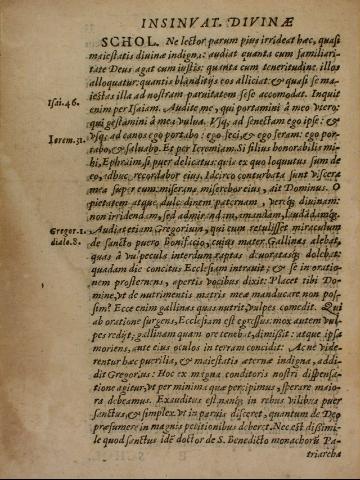 INSINVAT. DIVINÆ
SCHOL. Ne lector parum pius irrideat hæc, quasi
maiestatis diuinæ indigna: audiat quanta cum familiari-
tate Deus agat cum iustis: quanta cum teneritudine illos
alloquatur: quantis blanditijs eos alliciat: & quasi se ma-
iestas illa ad nostram paruitatem sese accomodat. Inquit
Isai. 46.
enim per Isaiam. Audite me, qui portamini à meo vtero:
qui gestamini à mea vulua. Vsq; ad senectam ego ipse: &
Ierem. 31.
vsq; ad canos ego portabo: ego feci, & ego feram: ego por-
tabo, & saluabo. Et per Ieremiam. Si filius honorabilis mi-
hi, Ephraim, si puer delicatus: quia ex quo loquutus sum de
eo, adhuc recordabor eius. Idcirco conturbata sunt viscera
mea super eum: miserans miserebor eius, ait Dominus. O
pietatem atque dulcedinem paternam, vereq; diuinam:
non irridendam, sed admirandam, amandam, laudādamq;.
Gregor. 1.
Audiat etiam Gregorium, qui cum retulisset miraculum
dialo. 8.
de sancto puero bonifacio, cuius mater Gallinas alebat,
quas à vulpecula interdum raptas & uoratasq; dolebat:
quadam die concitus Ecclesiam intrauit; & se in oratio-
nem prosternens, apertis vocibus dixit: Placet tibi Do-
mine, vt de nutrimentis matris meæ manducare non pos-
sim? Ecce enim gallinas quas nutrit, vulpes comedit. Qui
ab oratione surgens, Ecclesiam est egressus: mox autem vul-
pes redijt, gallinam quam ore tenebat, dimisit: atque ipsa
moriens, ante eius oculos in terram concidit. Ac ne vide-
rentur hæc puerilia, & maiestatis æterna indigna, addi-
dit Gregorius: Hoc ex magna conditoris nostri dispensa-
tione agitur, vt per minima quæ percipimus, sperare maio-
ra debeamus. Exauditus est nanq; in rebus vilibus puer
sanctus, & simplex vt in paruis disceret, quantum de Deo
præsumere in magnis petitionibus deberet. Nec est dissimi-
le quod sanctus idē doctor de S. Benedicto monachorū Pa-
triarcha